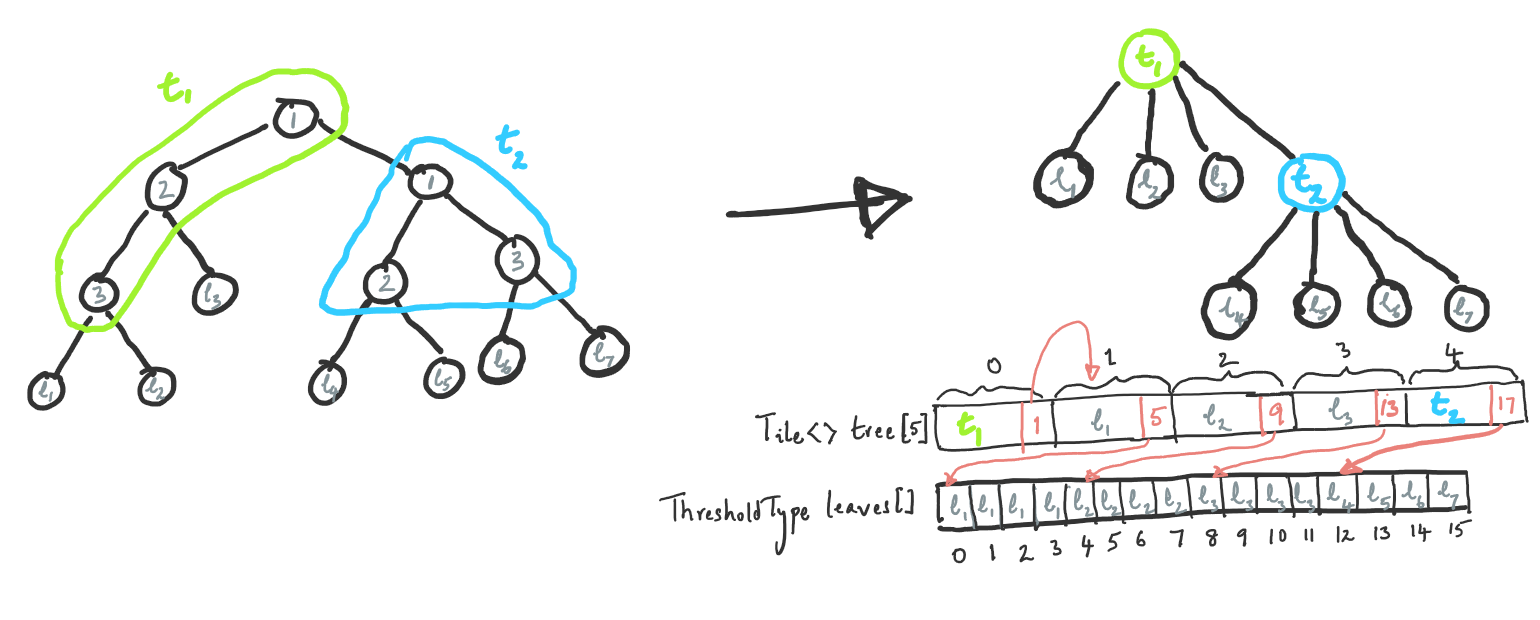 t₁
1
t₂
2
1
3
l₃
2
3
l₁
l₂
l₄
l₅
l₆
l₇
t₁
l₁
l₂
l₃
t₂
l₄
l₅
l₆
l₇
0 1 2 3 4
Tile<> tree[5] t₁ 1 l₁ 5 l₂ 9 l₃ 13 t₂ 17
ThresholdType leaves[] l₁ l₁ l₁ l₁ l₂ l₂ l₂ l₂ l₃ l₃ l₃ l₃ l₄ l₅ l₆ l₇
0 1 2 3 4 5 6 7 8 9 10 11 12 13 14 15